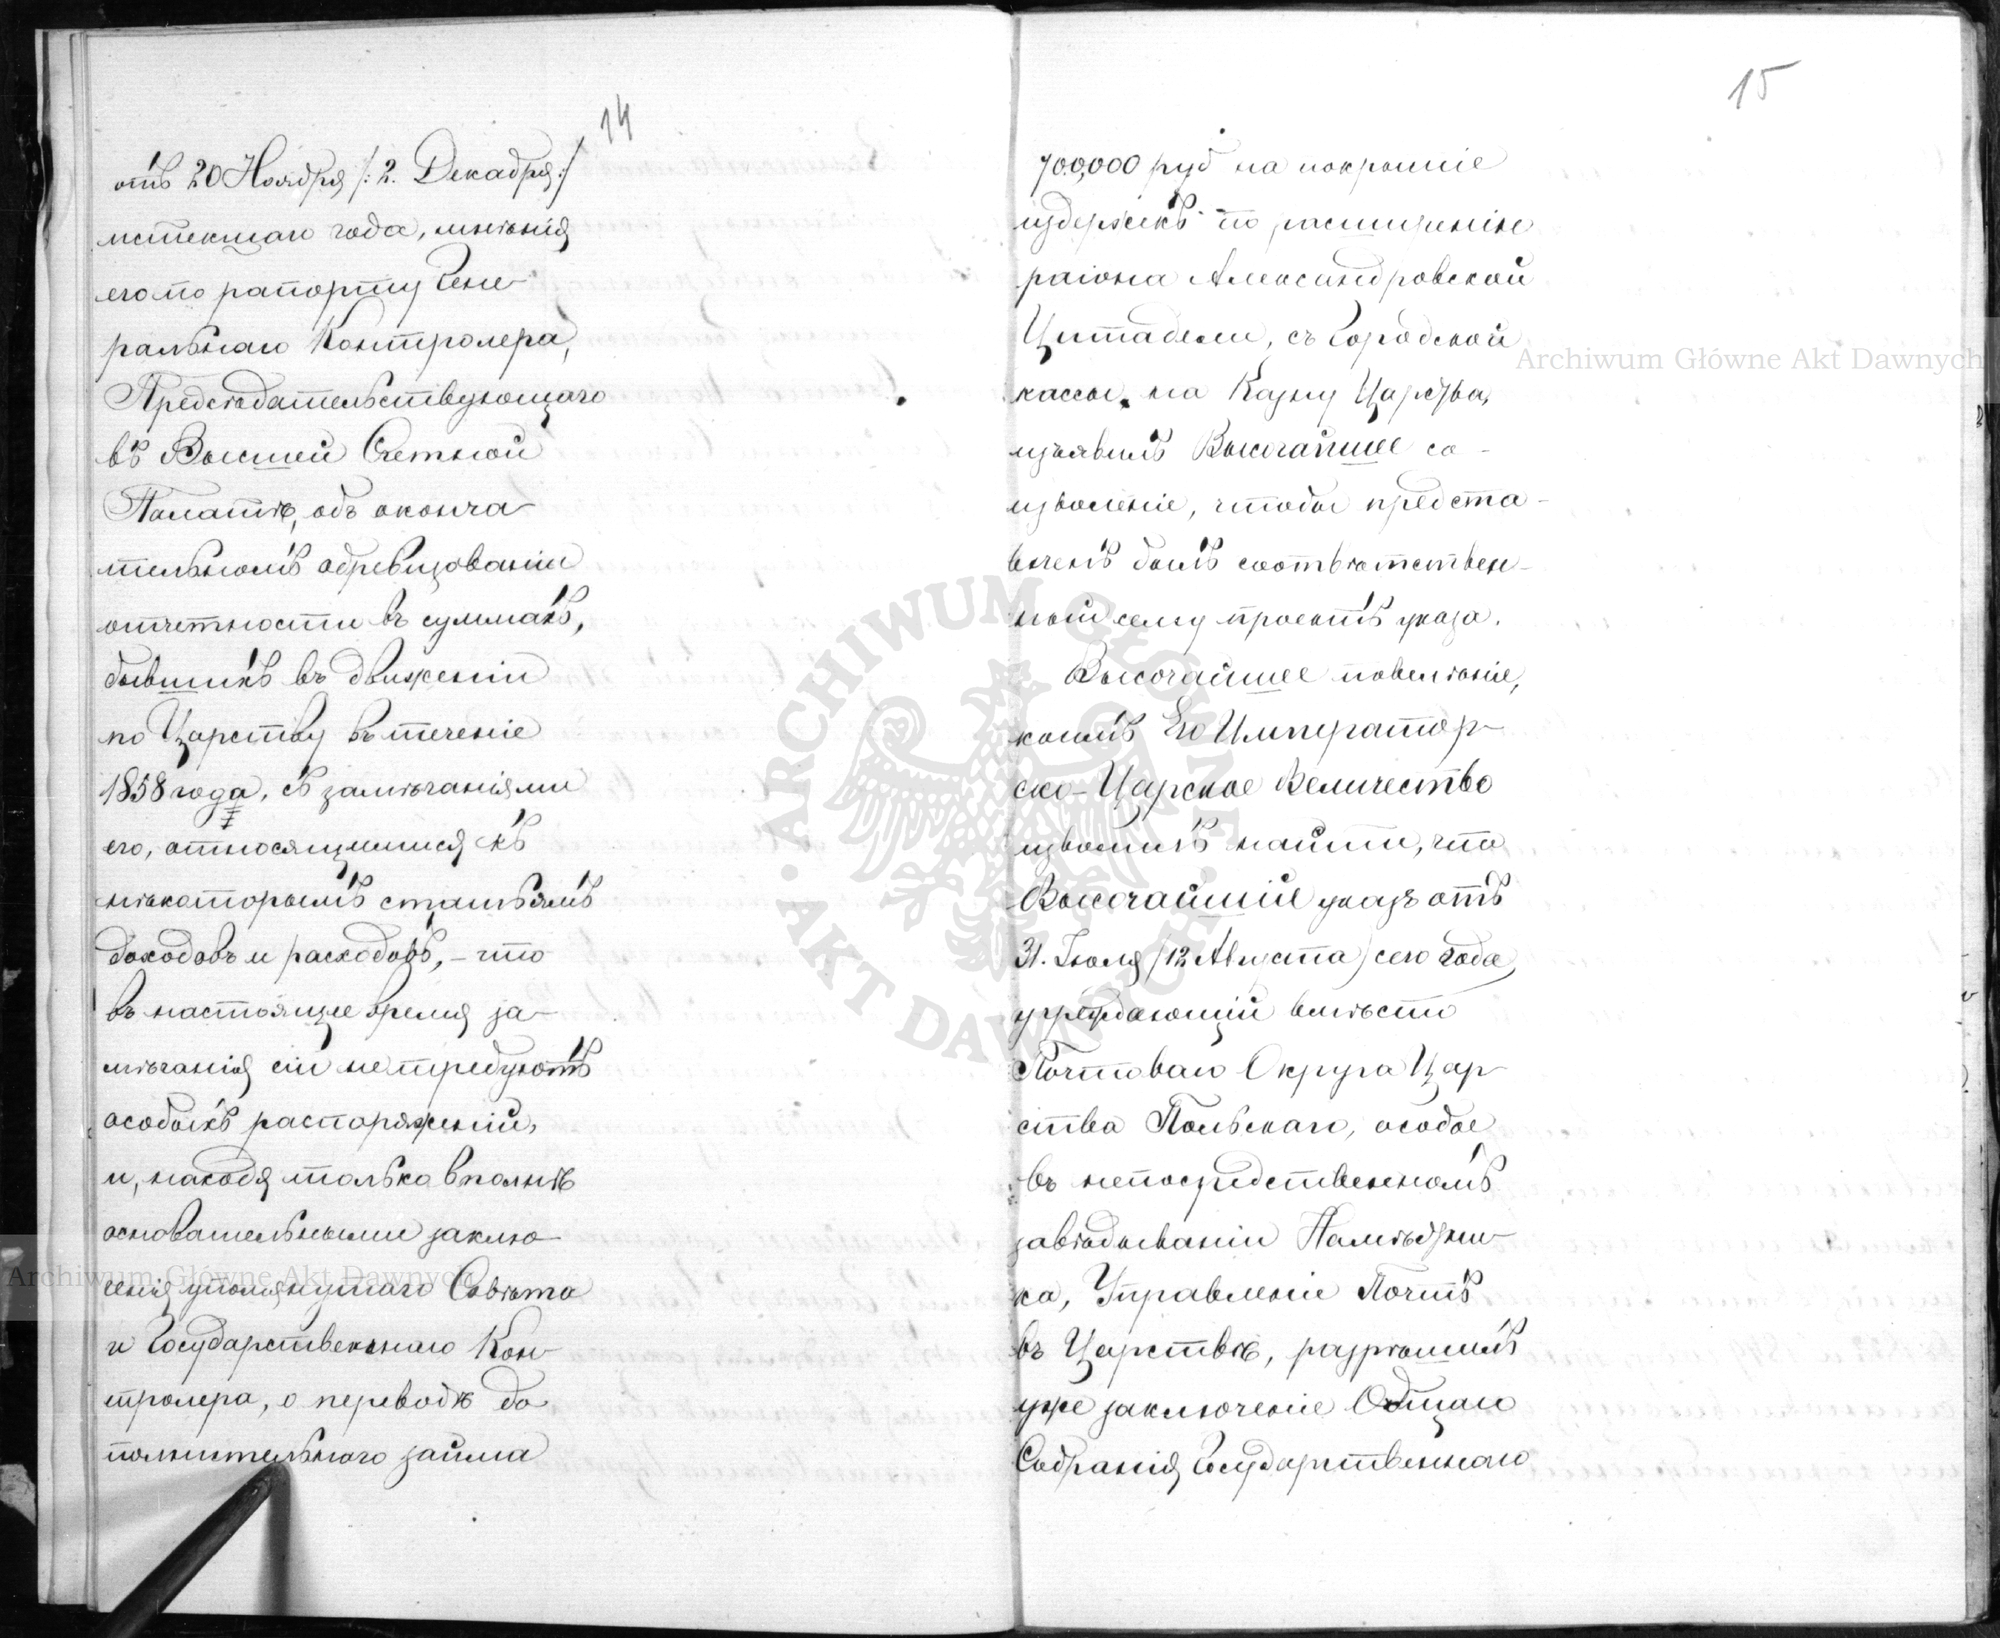 14
отъ 20 Ноября /: 2. Декабря :/
истекшаго года, мнѣнія
его по рапорту Гене-
ральнаго Контролера,
Предсѣдательствующаго
въ Высшей Счетной
Палатѣ, объ оконча-
тельномъ обревизованіи
отчетности въ суммахъ,
бывшихъ въ движеніи
по Царству въ теченіе
1858 года, съ замѣчаніями
его, относящимися къ
нѣкоторымъ статьямъ
доходовъ и расходовъ, – что
въ настоящее время за-
мѣчанія сіи не требуютъ
особыхъ распоряженій,
и, находя только вполнѣ
основательными заклю-
ченія упомянутаго Совѣта
и Государственнаго Кон-
тролера, о переводѣ до-
полнительнаго займа
15
700,000 руб на покрытіе
издержекъ по расширенію
раіона Александровской
Цитадели, съ Городской
кассы, на Казну Царства,
изъявилъ Высочайшее со-
изволеніе, чтобы предста-
вленъ былъ соотвѣтствен-
ный сему проектъ указа.
Высочайшее повелѣніе,
коимъ Его Император-
ско-Царское Величество
изволилъ найти, что
Высочайшій указъ отъ
31. Іюля /12 Августа/ сего года,
учреждающій вмѣсто
Почтоваго Округа Цар-
ства Польскаго, особое
въ непосредственномъ
завѣдываніи Намѣстни-
ка, Управленіе Почтъ
въ Царствѣ, разрѣшилъ
уже заключеніе Общаго
Собранія Государственнаго
Archiwum Główne Akt Dawnych
Archiwum Główne Akt Dawnych
ARCHIWUM GŁÓWNE AKT DAWNYCH